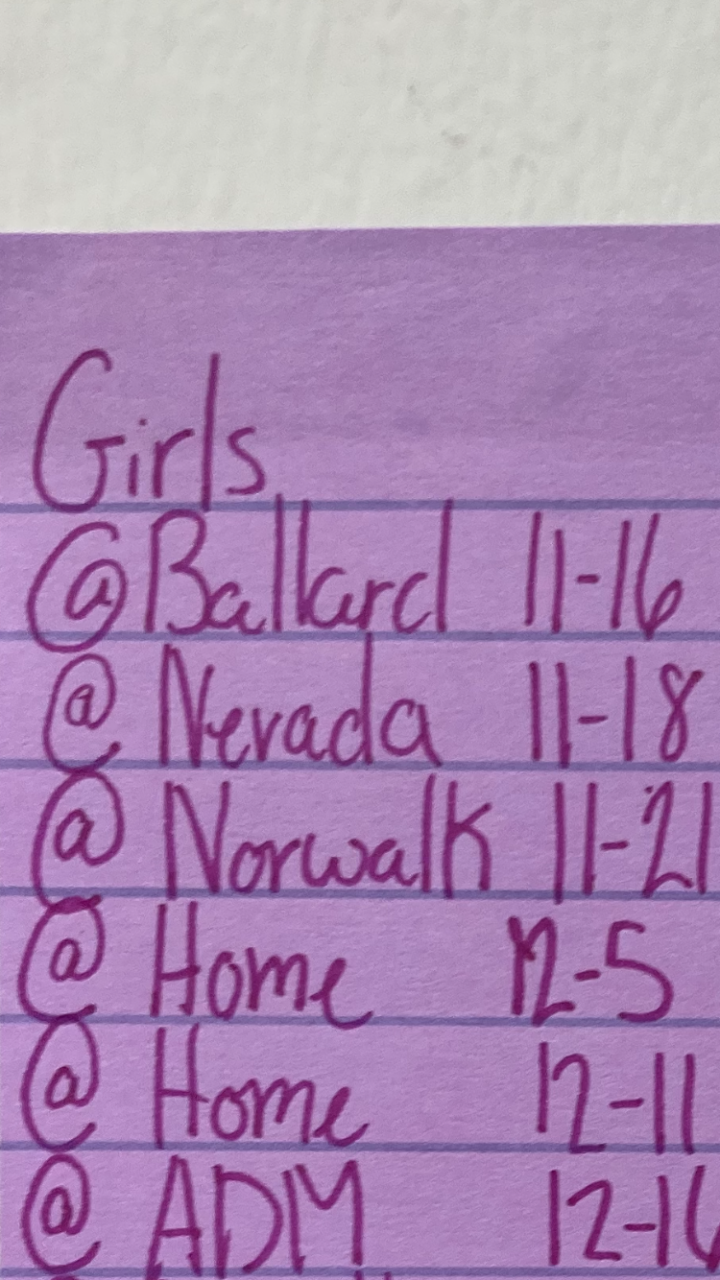 Girls
@ Ballard 11-16
@ Nevada 11-18
@ Norwalk 11-21
@ Home 12-5
@ Home 12-11
@ ADM